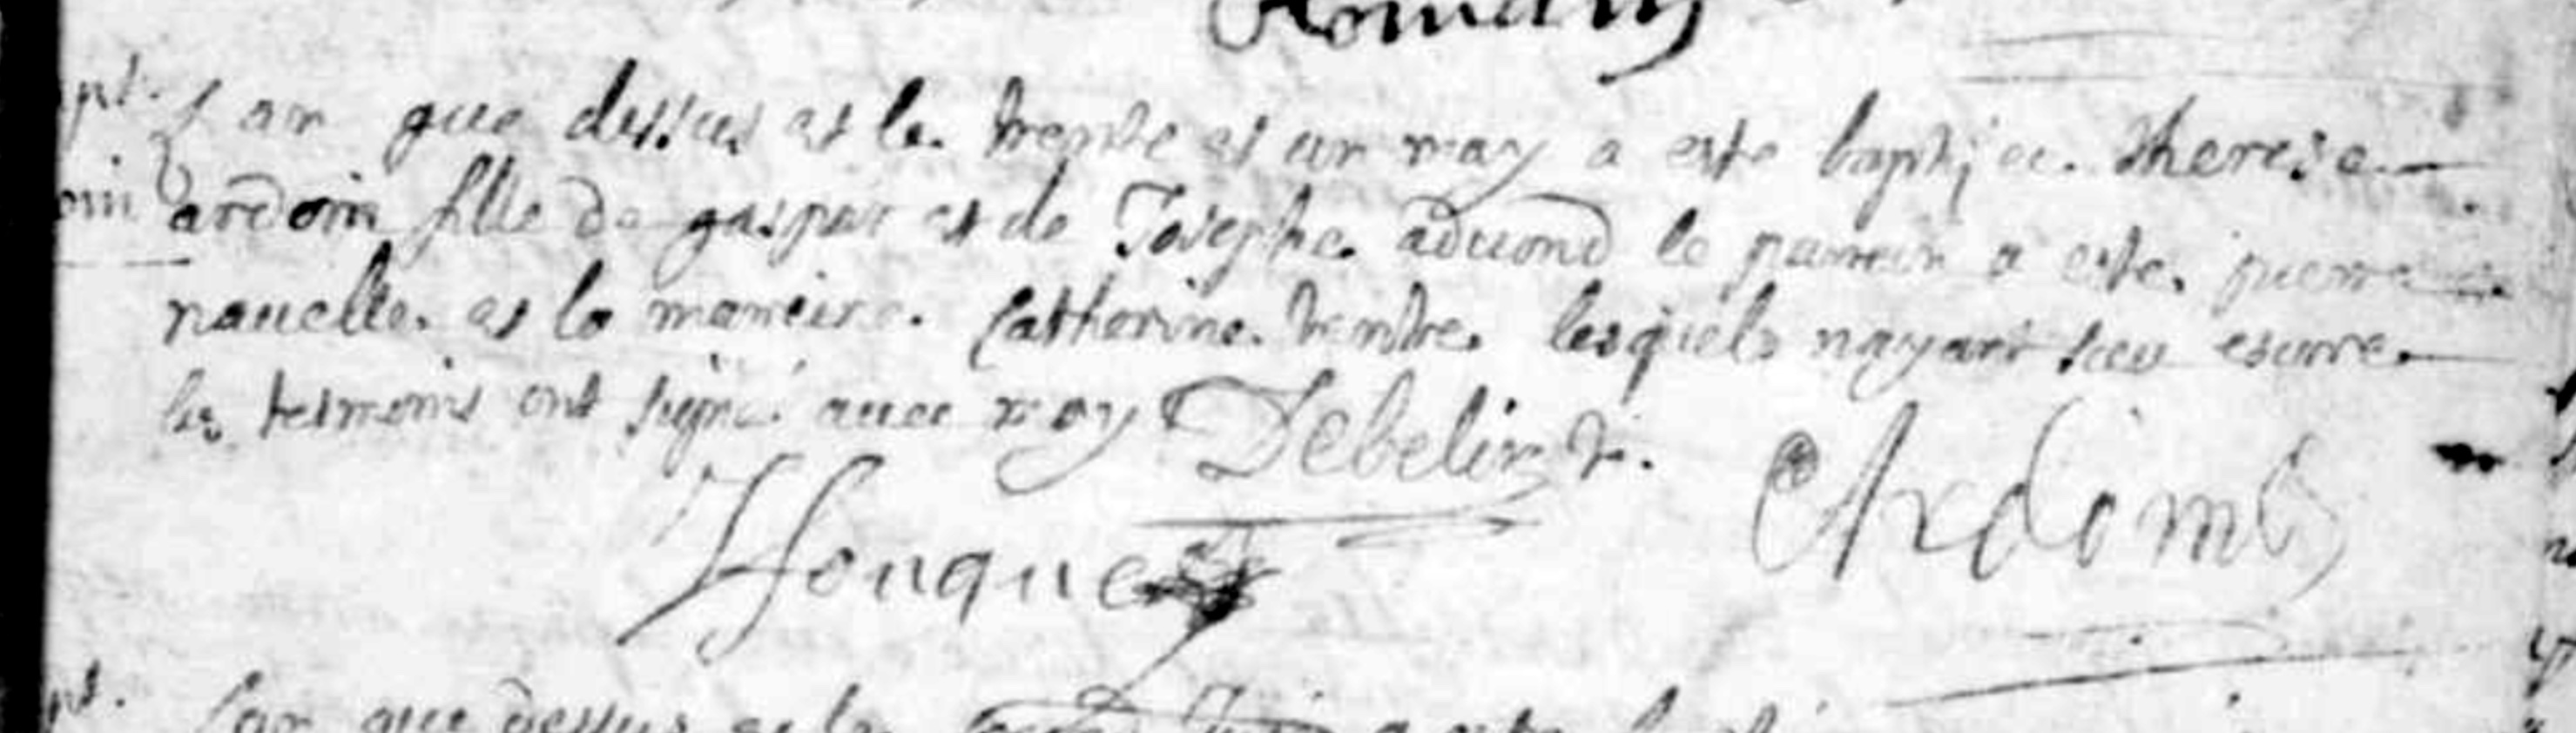 Romans
pt. Lan que dessus et le trente et un may a este baptisee therese
oin ardoin fille de gaspar et de Josephe aduond le parrein a este pierre
nauelle et la mareire Catherine trendre lesquels nayant sceu escrire
les tesmoins ont signé auec moy Debelin
Honque Ardoin
pt. Lan que dessus et le a este